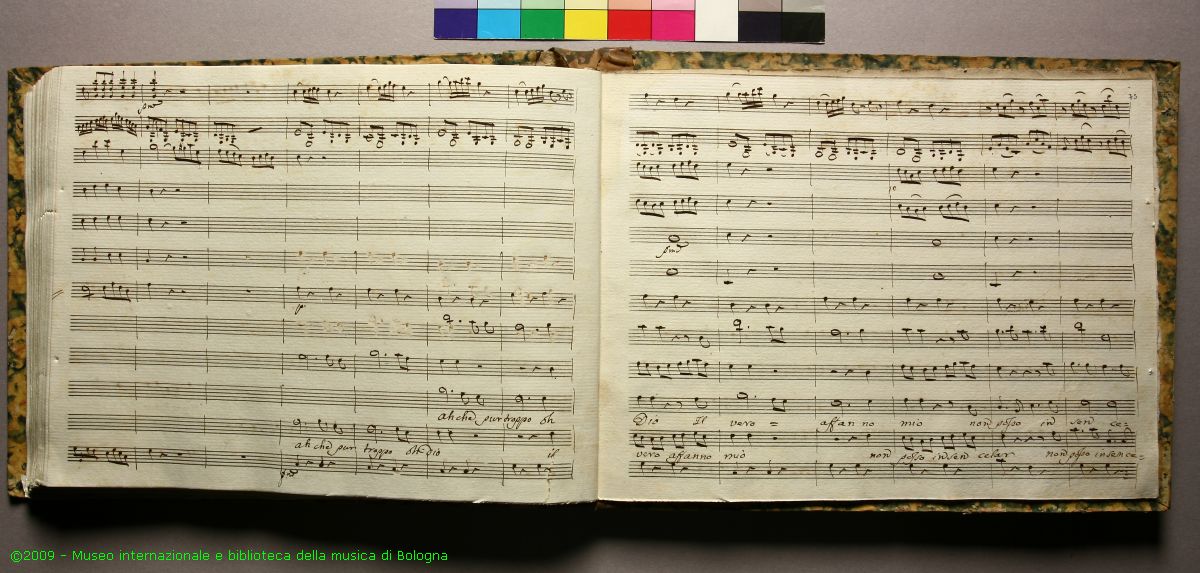 ah che pur troppo oh
ah che pur troppo oh dio il
75
Dio Il vero = affanno mio non posso in sen ce=
vero affanno mio non posso in sen celar non posso in sen ce=
©2009 - Museo internazionale e biblioteca della musica di Bologna